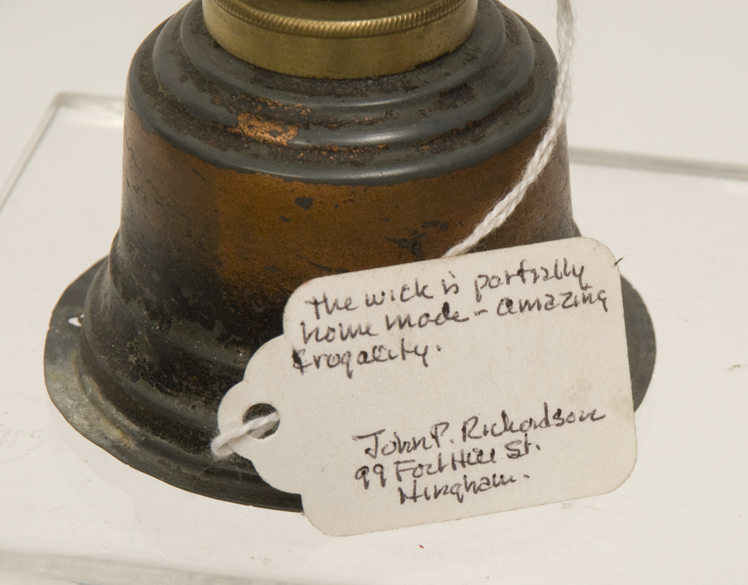 The wick is partially
home made - amazing
frugality.
John P. Richardson
99 Fort Hill St.
Hingham.